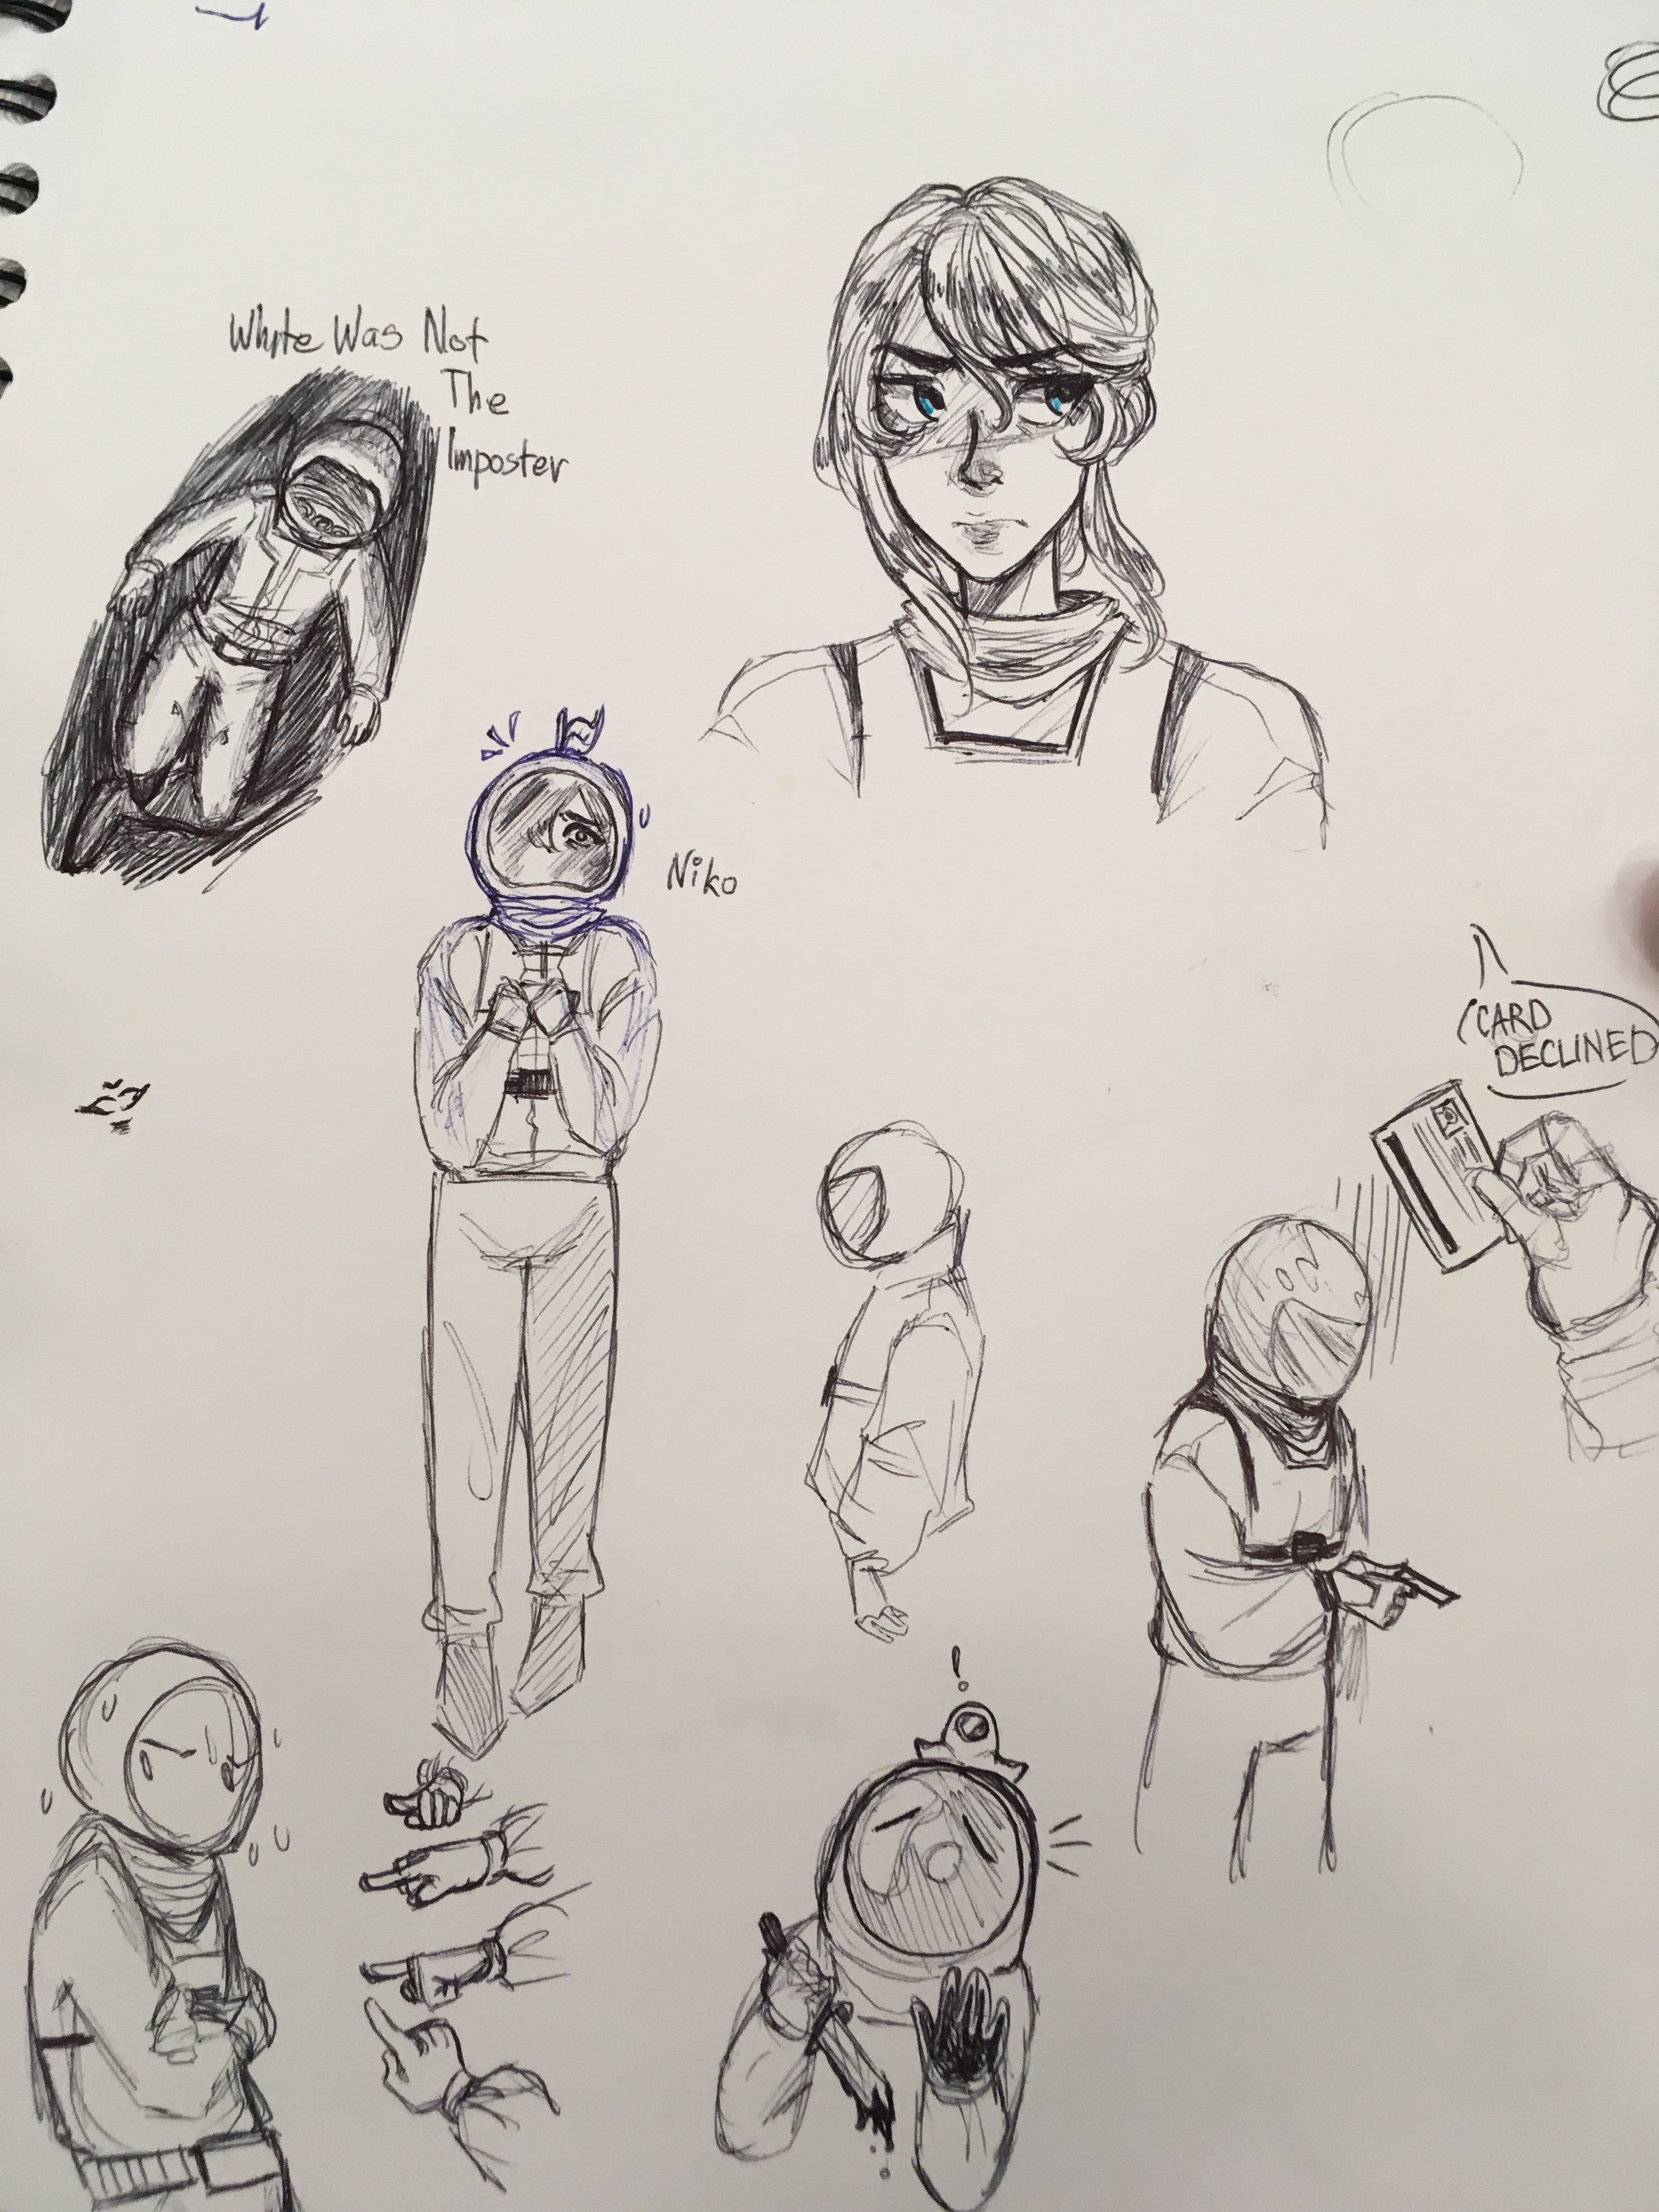 White Was Not
The
Imposter
Niko
CARD
DECLINED
!